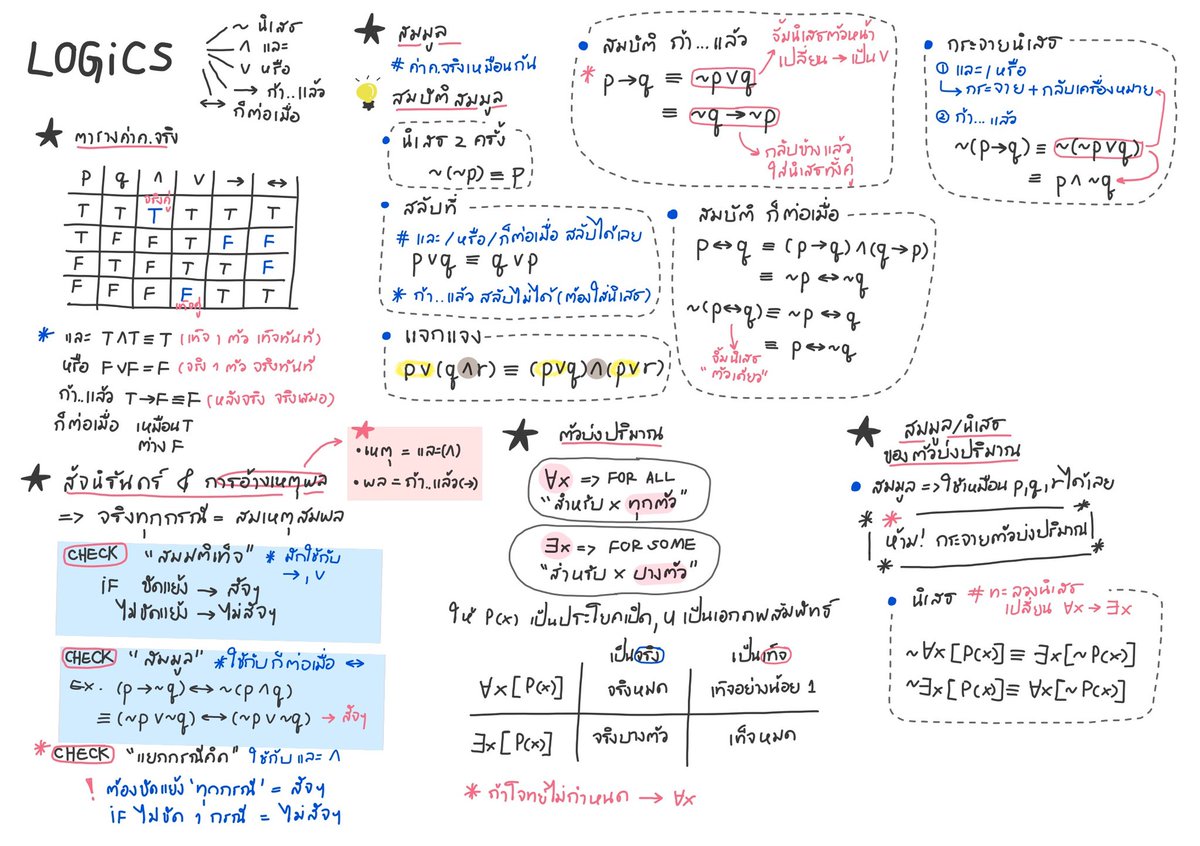 LOGiCS
~ นิเสธ
∧ และ
∨ หรือ
→ ถ้า..แล้ว
↔ ก็ต่อเมื่อ
★ ตารางค่าค.จริง
p q ∧ ∨ → ↔
จริงคู่
T T T T T T
T F F T F F
F T F T T F
F F F F T T
เท็จคู่
* และ T∧T≡T (เท็จ 1 ตัว เท็จทันที)
หรือ F∨F=F (จริง 1 ตัว จริงทันที
ถ้า..แล้ว T→F≡F (หลังจริง จริงเสมอ)
ก็ต่อเมื่อ เหมือน T
ต่าง F
★ สมมูล
# ค่าค.จริงเหมือนกัน
สมบัติ สมมูล
• นิเสธ 2 ครั้ง
~(~p) ≡ p
• สลับที่
# และ/หรือ/ก็ต่อเมื่อ สลับได้เลย
p∨q ≡ q∨p
* ถ้า..แล้ว สลับไม่ได้ (ต้องใส่นิเสธ)
• แจกแจง
p∨(q∧r) ≡ (p∨q)∧(p∨r)
• สมบัติ ถ้า...แล้ว
* p→q ≡ ~p∨q
จิ้มนิเสธตัวหน้า
เปลี่ยน → เป็น ∨
≡ ~q→~p
กลับข้างแล้ว
ใส่นิเสธทั้งคู่
• สมบัติ ก็ต่อเมื่อ
p↔q ≡ (p→q)∧(q→p)
≡ ~p↔~q
~(p↔q) ≡ ~p↔q
≡ p↔~q
จิ้มนิเสธ
"ตัวเดียว"
• กระจายนิเสธ
① และ/หรือ
↳ กระจาย + กลับเครื่องหมาย
② ถ้า... แล้ว
~(p→q) ≡ ~(~p∨q)
≡ p∧~q
★ สัจนิรันดร์ & การอ้างเหตุผล
★
• เหตุ = และ(∧)
• ผล = ถ้า..แล้ว(→)
=> จริงทุกกรณี = สมเหตุสมผล
CHECK "สมมติเท็จ" * มักใช้กับ
→, ∨
iF ขัดแย้ง → สัจฯ
ไม่ขัดแย้ง → ไม่สัจฯ
CHECK "สมมูล" *ใช้กับ ก็ต่อเมื่อ ↔
Ex. (p→~q)↔~(p∧q)
≡(~p∨~q)↔(~p∨~q) → สัจฯ
* CHECK "แยกกรณีคิด" ใช้กับ และ ∧
! ต้องขัดแย้ง 'ทุกกรณี' = สัจฯ
iF ไม่ขัด 1 กรณี = ไม่สัจฯ
★ ตัวบ่งปริมาณ
∀x => FOR ALL
"สำหรับ x ทุกตัว"
∃x => FOR SOME
"สำหรับ x บางตัว"
ให้ P(x) เป็นประโยคเปิด, U เป็นเอกภพสัมพัทธ์
เป็นจริง เป็นเท็จ
∀x[P(x)] จริงหมด เท็จอย่างน้อย 1
∃x[P(x)] จริงบางตัว เท็จหมด
* ถ้าโจทย์ไม่กำหนด → ∀x
★ สมมูล/นิเสธ
ของตัวบ่งปริมาณ
• สมมูล => ใช้เหมือน p,q,r ได้เลย
ห้าม! กระจายตัวบ่งปริมาณ
• นิเสธ # ทะลวงนิเสธ
เปลี่ยน ∀x → ∃x
~∀x[P(x)] ≡ ∃x[~P(x)]
~∃x[P(x)] ≡ ∀x[~P(x)]